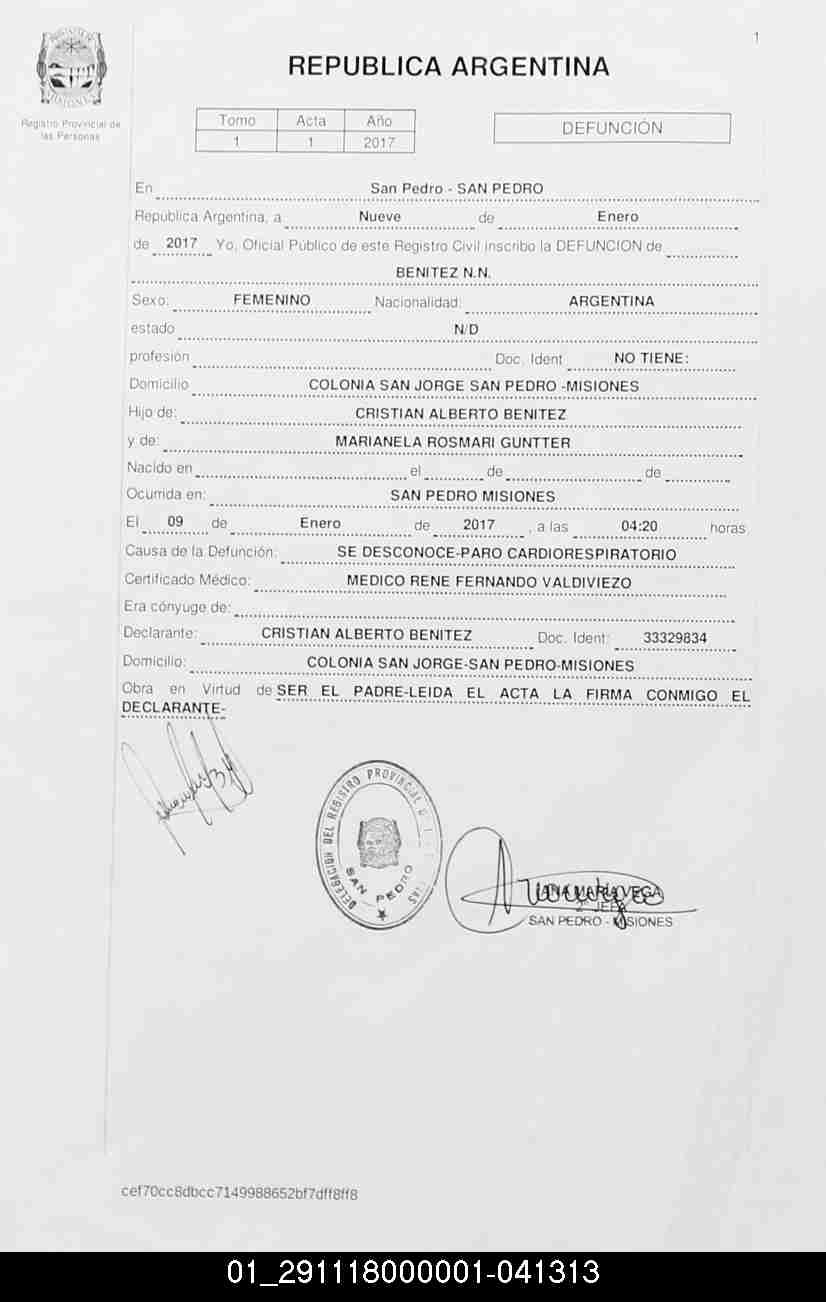 1
REPUBLICA ARGENTINA
Registro Provincial de
las Personas
Tomo Acta Año
1 1 2017
DEFUNCIÓN
En San Pedro - SAN PEDRO
Republica Argentina, a Nueve de Enero
de 2017 Yo, Oficial Público de este Registro Civil inscribo la DEFUNCION de
BENITEZ N.N.
Sexo: FEMENINO Nacionalidad: ARGENTINA
estado N/D
profesión Doc. Ident NO TIENE:
Domicilio COLONIA SAN JORGE SAN PEDRO -MISIONES
Hijo de: CRISTIAN ALBERTO BENITEZ
y de: MARIANELA ROSMARI GUNTTER
Nacido en el de de
Ocurrida en: SAN PEDRO MISIONES
El 09 de Enero de 2017 , a las 04:20 horas
Causa de la Defunción: SE DESCONOCE-PARO CARDIORESPIRATORIO
Certificado Médico: MEDICO RENE FERNANDO VALDIVIEZO
Era cónyuge de:
Declarante: CRISTIAN ALBERTO BENITEZ Doc. Ident: 33329834
Domicilio: COLONIA SAN JORGE-SAN PEDRO-MISIONES
Obra en Virtud de SER EL PADRE-LEIDA EL ACTA LA FIRMA CONMIGO EL
DECLARANTE-
DELEGACION DEL REGISTRO PROVINCIAL
SAN PEDRO
ANA MARÍA VEGA
2° JEFA
SAN PEDRO - MISIONES
cef70cc8dbcc7149988652bf7dff8ff8
01_291118000001-041313